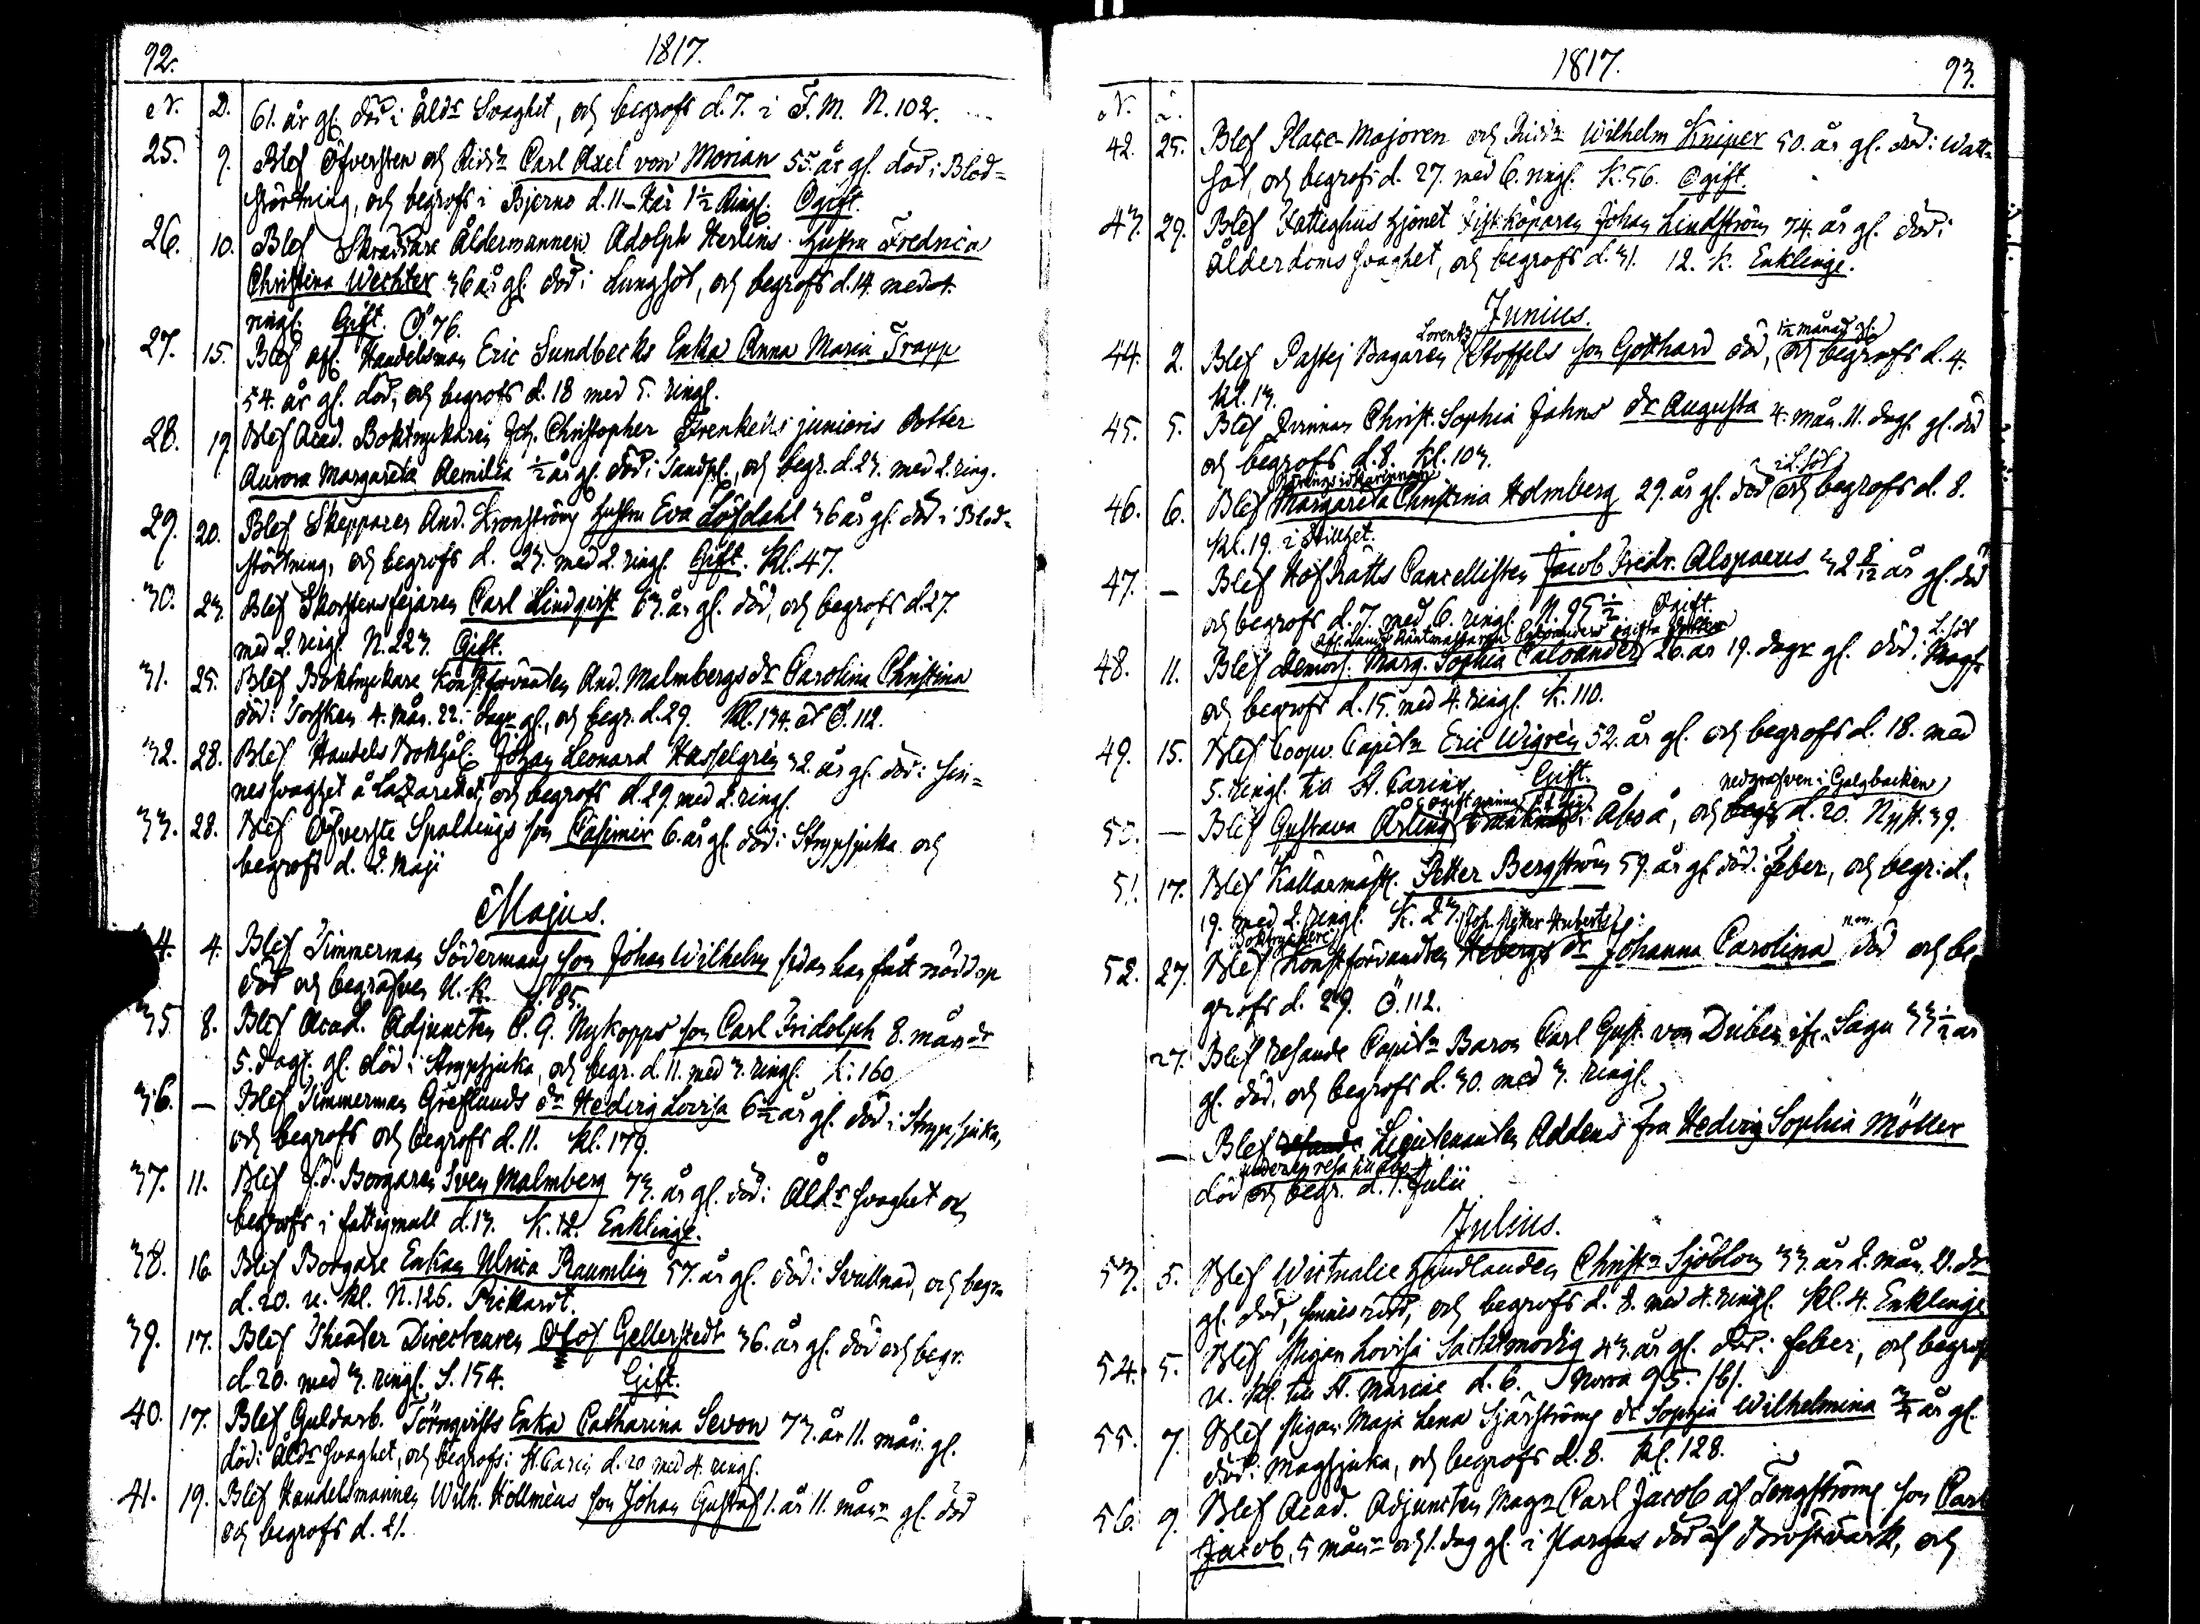 92.
1817.
N. D.
61. år gl. död i Åld:s Svaghet, och begrofs d. 7. i F. M. N. 102.
25. 9. Blef Öfversten och Ridd:n Carl Axel von Morian 55. år gl. död i Blod=
störtning, och begrofs i Bjerno d. 11 – Här 1½ Ringl. Ogift.
26. 10. Blef Skräddare Åldermannen Adolph Herlins hustru Fredrica
Christina Wechter 36 år gl. död i Lungsot, och begrofs d. 14. med 4.
ringl. Gift. Ö. 76.
27. 15. Blef afl. Handelsman Eric Sundbecks Enka Anna Maria Trapp
54. år gl. död, och begrofs d. 18 med 5. ringl.
28. 19. Blef Acad. Boktryckaren Joh. Christopher Frenkells junioris dotter
Aurora Margareta Aemilia ½ år gl. död i , och begr. d. 23. med 2. ring.
29. 20. Blef Skepparen And. Kronström hustru Eva Löfdahl 36 år gl. död i Blod=
störtning, och begrofs d. 23. med 2. ringl. Gift. Kl. 47.
30. 23. Blef Skorstensfejaren Carl Lindqvist 63. år gl. död, och begrofs d. 27.
med 2. ringl. N. 223. Gift.
31. 25. Blef Boktryckare Konstförvandten And. Malmbergs d:r Carolina Christina
död i Torsken 4. mån. 22. dagr gl., och begr. d. 29. Kl. 134. Ö. 112.
32. 28. Blef Handels Bokhål. Johan Leonard Hasselgrén 32. år gl. död i sin=
nessvaghet å Lazarettet, och begrofs d. 29. med 2. ringl.
33. 28. Blef Öfverste Spaldings son Casimir 6. år gl. död i Strypsjuka och
begrofs d. 2. Maji
Majus.
34. 4. Blef Timmerman Södermans son Johan Wilhelm sedan han fått nöddop
död och begrafven U. K. S. 85.
35. 8. Blef Acad. Adjuncten C. G. Nykopps son Carl Fridolph 8. månr
5. dag. gl. död i Strypsjuka, och begr. d. 11. med 3. ringl. K: 160
36. — Blef Timmerman Greflunds d:r Hedvig Lovisa 6½ år gl. död i Strypsjuka,
och begrofs och begrofs d. 11. Kl. 179.
37. 11. Blef f. d. Borgaren Sven Malmberg 73. år gl. död i Åld:s svaghet och
begrofs i fattigmull d. 13. K. 12. Enklinge.
38. 16. Blef Borgare Enkan Ulrica Raumlin 57. år gl. död i Svullnad, och begr.
d. 20. u. Kl. N. 126.
39. 17. Blef Theater Directeuren Olof Gellerstedt 36. år gl. död och begr.
d. 20. med 3. ringl. S. 154. Gift.
40. 17. Blef Guldarb. Törnqvists Enka Catharina Sevon 73. år 11. mån. gl.
död i Åld:s svaghet, och begrofs i St. Carin d. 20 med 4. ringl.
41. 19. Blef Handelsmannen Wilh. Höllméns son Johan Gustaf 1. år 11. mån:r gl. död
och begrofs d. 21.
1817.
93.
N.
42. 25. Blef Place-Majoren och Ridd:n Wilhelm Kniper 50. år gl. död i Watt=
sot, och begrofs d. 27. med 6. ringl. K. 56. Ogift.
43. 29. Blef Fattighus hjonet Fiskköparen Johan Lindström 74. år gl. död i
Ålderdoms svaghet, och begrofs d. 31. 12. K. Enklinge.
Junius.
Lorentz ½ månad gl.
44. 2. Blef Pastej Bagaren Stoffels son Gotthard död, och begrofs d. 4.
Kl. 13.
45. 5. Blef Qvinnan Christ. Sophia Jahns d:r Augusta 4. mån. 11. dag. gl. död
och begrofs d. 8. Kl. 103.
i L. sot
46. 6. Blef Margareta Christina Holmberg 29. år gl. död och begrofs d. 8.
Kl. 19. i stillhet.
47. — Blef Hof Rätts Cancellisten Jacob Fredr. Alopaeus 32 8/12 år gl. död
och begrofs d. 7. med 6. ringl. N. 95½ Ogift.
48. 11. Blef Demois. Marg. Sophia Caloander 26. år 19. dagr gl. död i
och begrofs d. 15. med 4. ringl. K. 110.
49. 15. Blef Coopv. Capit:n Eric Wigrén 52. år gl. och begrofs d. 18. med
5. ringl. til St. Carins Gift.
nedgrafven i Galgbacken
50. — Blef Gustava Årling i Åbo å, och begr d. 20. Nyst. 39.
51. 17. Blef Källarmäst. Petter Bergström 59. år gl. död i feber, och begr: d.
19. med 2. ringl. K. 23.
Boktryckere
52. 27. Blef Konstförvandten Hebergs d:r Johanna Carolina död och be=
grofs d. 29. Ö. 112.
27. Blef resande Capit:n Baron Carl Gust. von Düben ifr. Sagu 33½ år
gl. död, och begrofs d. 30. med 3. ringl.
— Blef resande Lieutenanten Addens fru Hedvig Sophia Möller
död och begr. d. 1. Julii
Julius.
53. 5. Blef Victualie handlanden Christ:n Sjöblom 33. år 2. mån. d:r
gl. död, och begrofs d. 8. med 4. ringl. Kl. 4. Enklinge
54. 5. Blef Pigan Lovisa Saktmodig 43. år gl. död i feber, och begrofs
u. kl. til St. Mariae d. 6. Norra 95. /6/.
55. 7. Blef Pigan Maja Lena Sjöströms d:r Sophia Wilhelmina ¾ år gl.
död i Magsjuka, och begrofs d. 8. Kl. 128.
56. 9. Blef Acad. Adjuncten Mag:r Carl Jacob af Tengströms son Carl
Jacob, 5 mån:r och 1. dag gl. i Pargas död af Bröstvärk, och